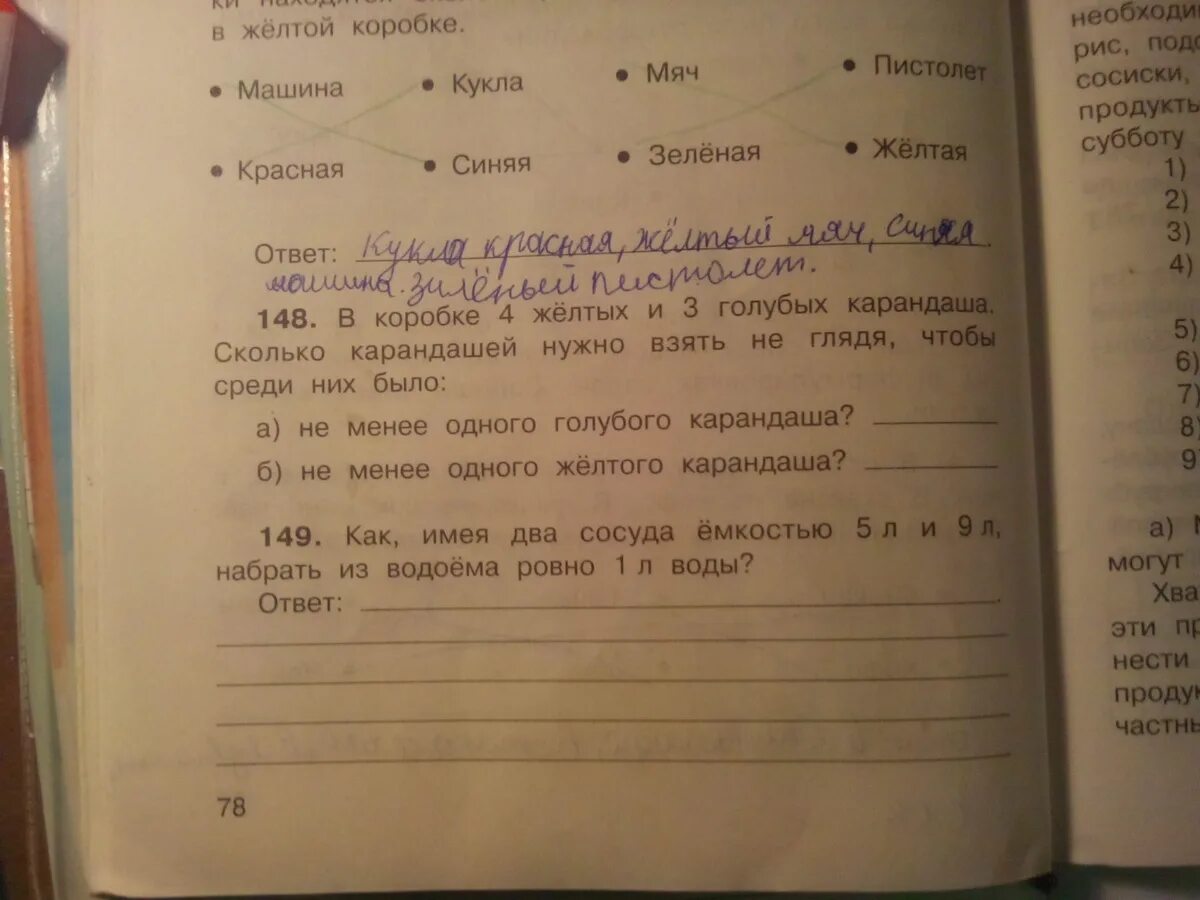 ки находятся
в жёлтой коробке.
• Машина • Кукла • Мяч • Пистолет
• Красная • Синяя • Зелёная • Жёлтая
Ответ: Кукла красная, жёлтый мяч, синяя
машина. зилёный пистолет.
148. В коробке 4 жёлтых и 3 голубых карандаша.
Сколько карандашей нужно взять не глядя, чтобы
среди них было:
а) не менее одного голубого карандаша?
б) не менее одного жёлтого карандаша?
149. Как, имея два сосуда ёмкостью 5 л и 9 л,
набрать из водоёма ровно 1 л воды?
Ответ:
78
необходи
рис, подс
сосиски,
продукты
субботу
1)
2)
3)
4)
5)
6)
7)
8)
9
а)
могут
Хва
эти пр
нести
продук
частны